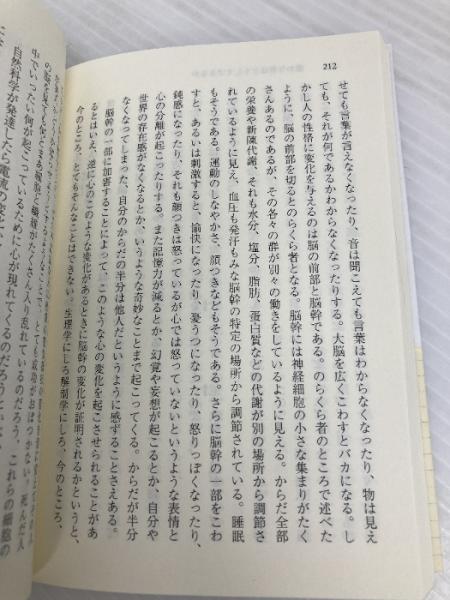 212
せても言葉が言えなくなったり、音は聞こえても言葉はわからなくなったり、物は見え
ても、それが何であるかわからなくなったりする。大脳を広くこわすとバカになる。し
かし人の性格に変化を与えるのは脳の前部と脳幹である。のらくら者のところで述べた
ように、脳の前部を切るとのらくら者となる。脳幹には神経細胞の小さな集まりがたく
さんあるのであるが、その各々の群が別々の働きをしているように見える。からだ全部
の栄養や新陳代謝、それも水分、塩分、脂肪、蛋白質などの代謝が別の場所から調節さ
れているように見え、血圧も発汗もみな脳幹の特定の場所から調節されている。睡眠
もあるようである。運動のしなやかさ、顔つきなどもそうである。さらに脳幹の一部をこわ
すと、あるいは刺激すると、愉快になったり、憂うつになったり、怒りっぽくなったり、
鈍感になったり、それも顔つきは怒っているが心では怒っていないというような表情と
心の分離が起こったりする。また記憶力が減るとか、幻覚や妄想が起こるとか、自分や
世界の存在感がなくなるとか、いうような奇妙なことまで起こってくる。からだが半分
なくなってしまった、自分のからだの半分は他人だというように感ずることさえある。
脳幹の一部に加害することによって、このような心の変化を起こさせられることがあ
るとはいえ、逆に心のこのような変化があるときに脳幹の変化が証明されるかというと、
今のところ、とてもそんなことはできない。生理学にしろ解剖学にしろ、今のところ、
中でいったい何が起こっているために心が現れてくるのだろう
自然科学が発達したら電流の